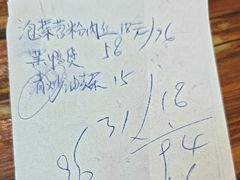 泡菜苕粉肉丝 18元/26
菜鸭煲 58
青炒油麦菜 15
31/18
94
96